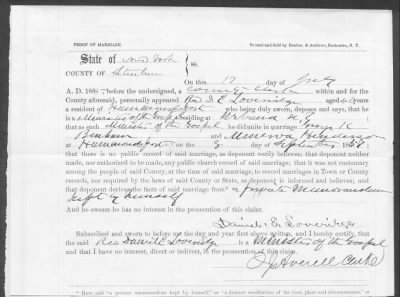 PROOF OF MARRIAGE. Printed and Sold by Benton & Andrews, Rochester, N. Y.
State of New York
COUNTY OF Steuben } ss.
On this 12 day of July
A. D. 1867 before the undersigned, a County Clerk within and for the
County aforesaid, personally appeared Rev D. E. Loveridge aged 43
a resident of Hammondsport who being duly sworn, deposes and says, that he
is a Minister of the Gospel residing at Urbana N. Y.
that as such Minister of the Gospel he did unite in marriage George R
and Minerva Henderson
at Hammondsport on the 8 day of September
that there is no public record of said marriage, as deponent verily believes; that deponent neither
made, nor authorized to be made, any public church record of said marriage; that it was not customary
among the people of said County, at the time of said marriage, to record marriages in Town or County
records, nor required by the laws of said County or State, as deponent is informed and believes; and
that deponent derives the facts of said marriage from* a private Memorandum
kept by himself
And he swears he has no interest in the prosecution of this claim.
Daniel E. Loveridge
Subscribed and sworn to before me the day and year first above written, and I hereby certify, that
the said Rev Daniel E Loveridge is a Minister of the Gospel
and that I have no interest, direct or indirect, in the prosecution of this claim.
Averell Clerk
* Here add "a private memorandum kept by himself," or "a distinct recollection of the time, place and circumstances," or